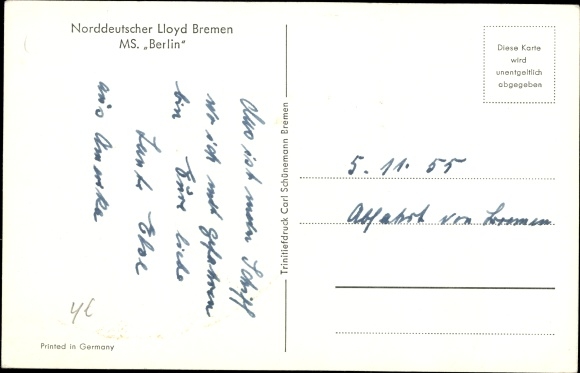 Norddeutscher Lloyd Bremen
MS. „Berlin"
Diese Karte
wird
unentgeltlich
abgegeben
Das ist mein Schiff
wo ich mit gefahren
bin Eure liebe
Tante Else
aus Amerika
Trinitiefdruck Carl Schünemann Bremen
5. 11. 55
Abfahrt von Bremen
Printed in Germany